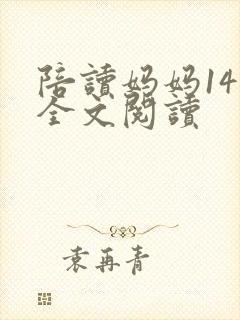 陪讀媽媽14
全文閱讀
袁再青